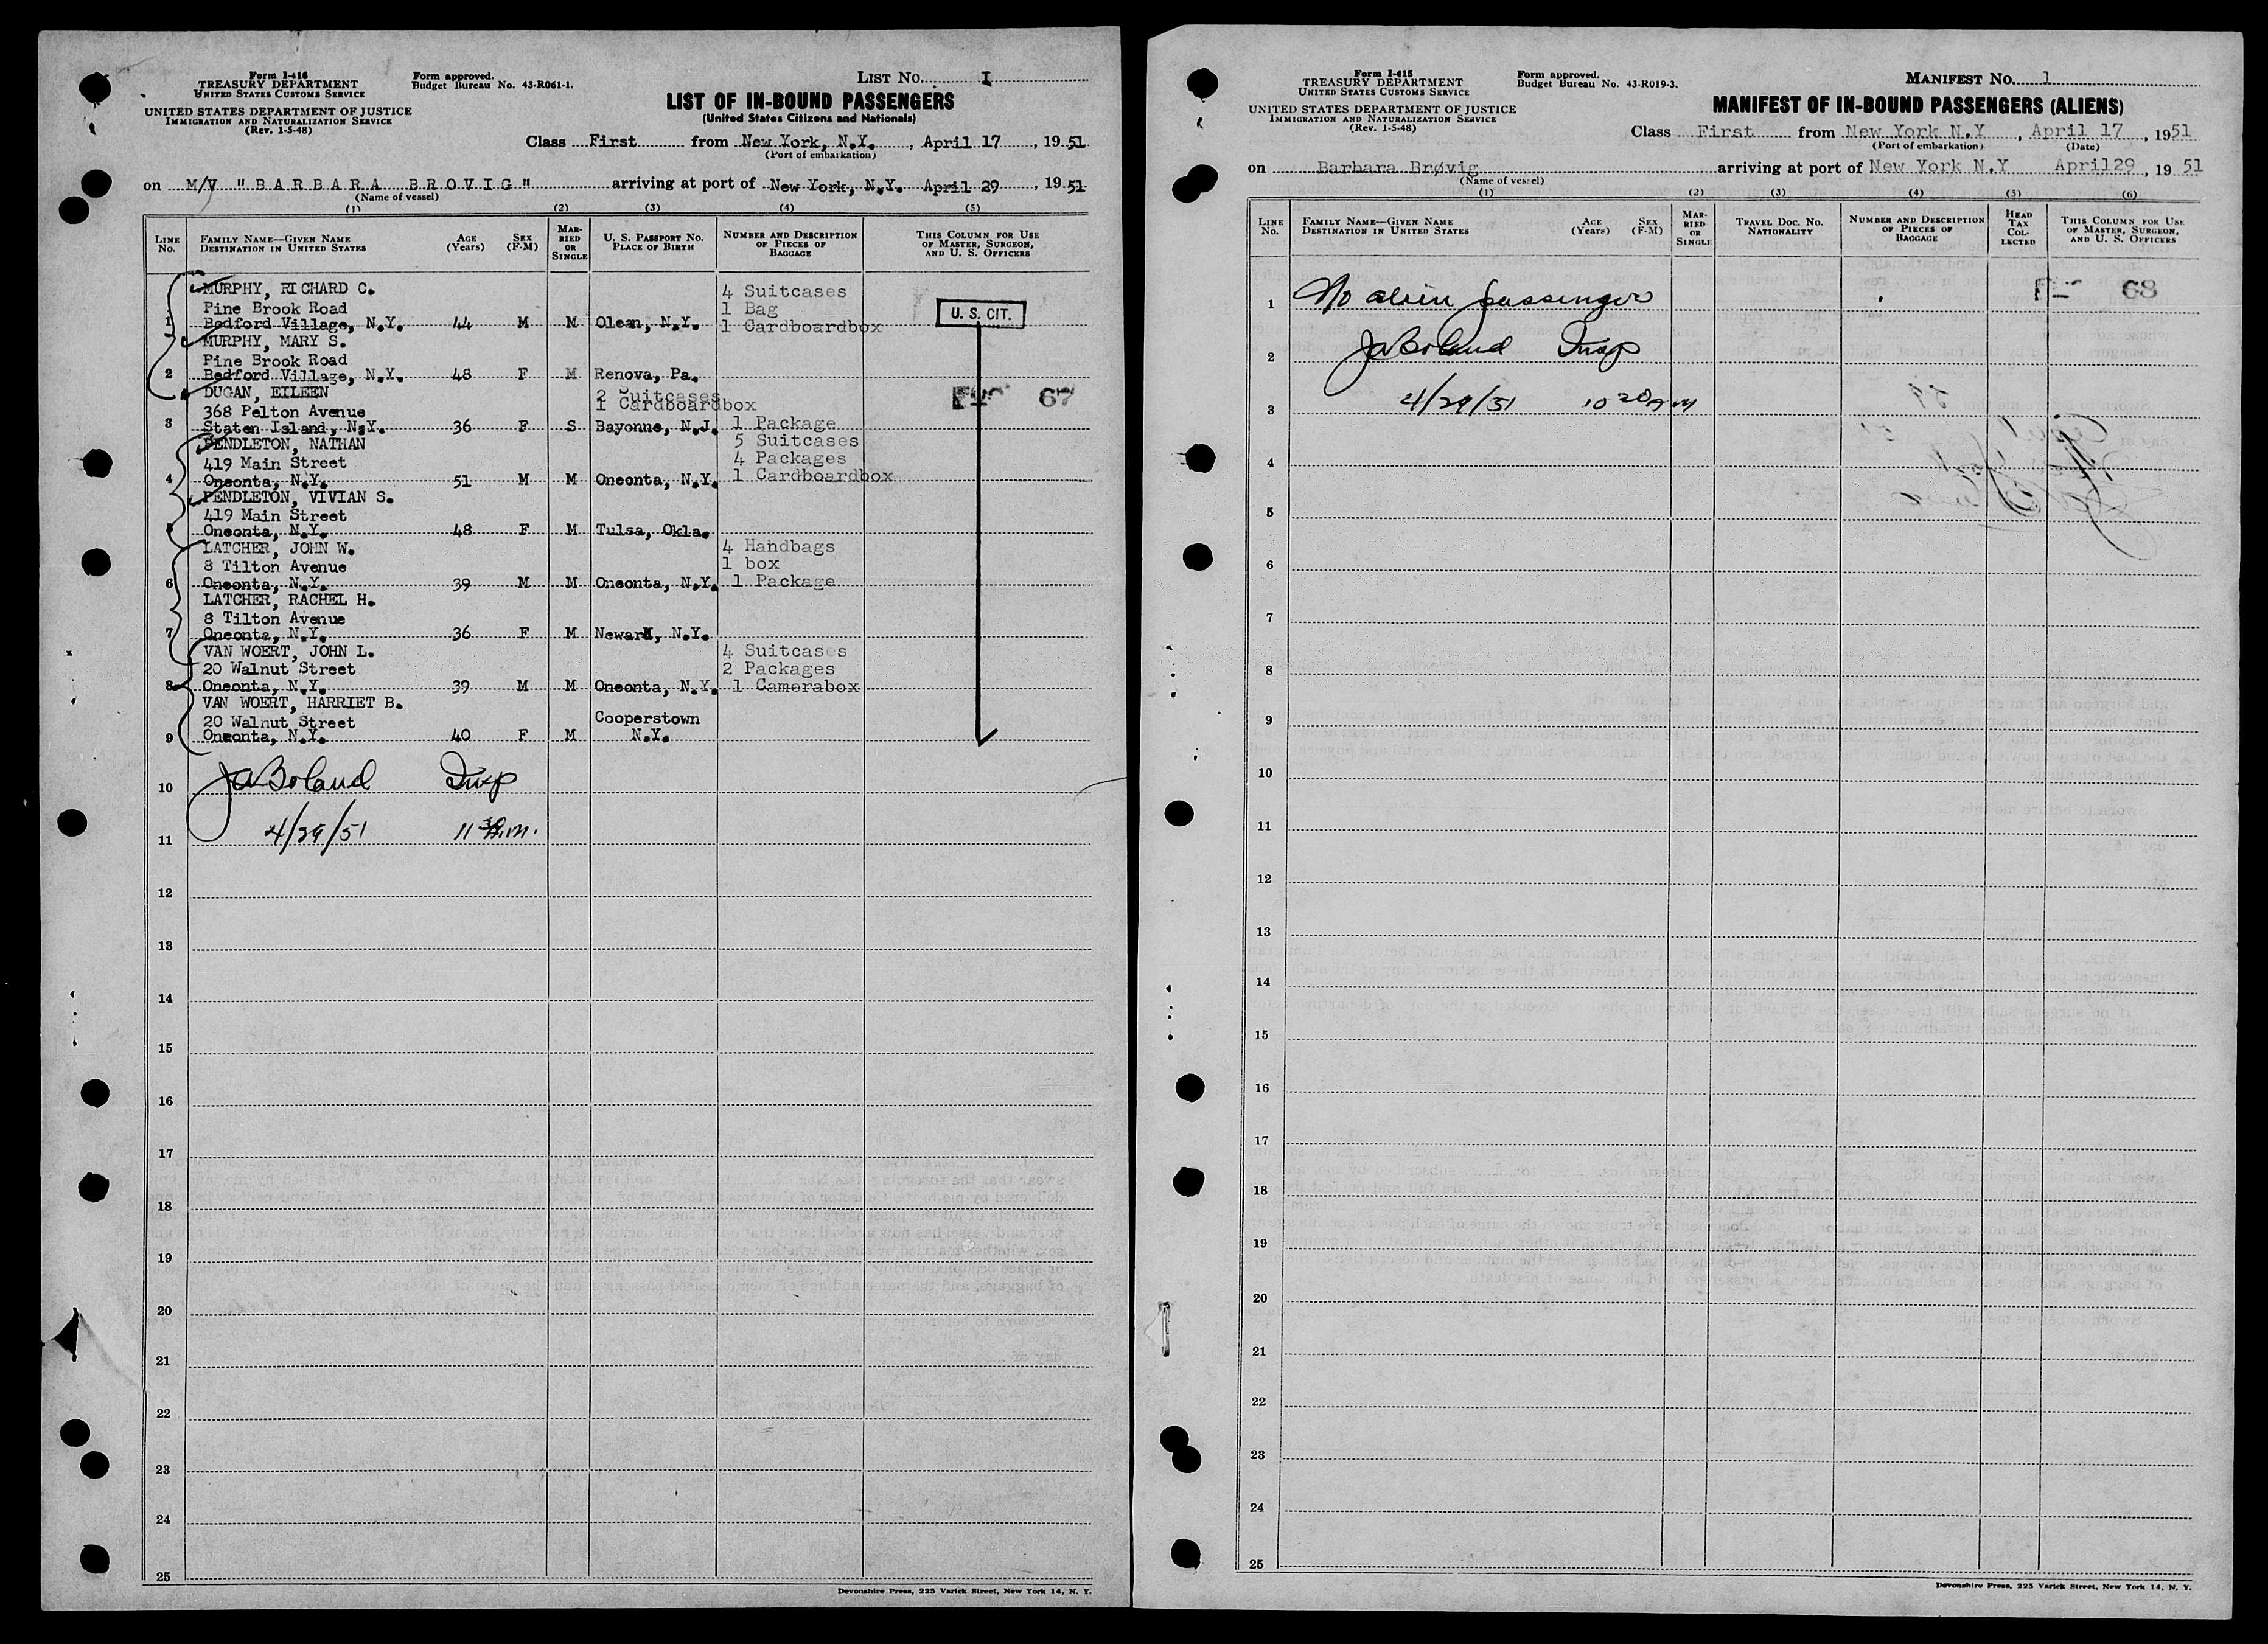 Form I-416
TREASURY DEPARTMENT
UNITED STATES CUSTOMS SERVICE
UNITED STATES DEPARTMENT OF JUSTICE
IMMIGRATION AND NATURALIZATION SERVICE
(Rev. 1-5-48)
Form approved.
Budget Bureau No. 43-R061-1.
LIST NO. I
LIST OF IN-BOUND PASSENGERS
(United States Citizens and Nationals)
Class First from New York, N.Y. , April 17 , 19 51
(Port of embarkation)
on M/V "BARBARA BROVIG" arriving at port of New York, N.Y. April 29 , 19 51
(Name of vessel)
(1) (2) (3) (4) (5)
LINE NO. FAMILY NAME—GIVEN NAME DESTINATION IN UNITED STATES AGE (Years) SEX (F-M) MARRIED OR SINGLE U. S. PASSPORT NO. PLACE OF BIRTH NUMBER AND DESCRIPTION OF PIECES OF BAGGAGE THIS COLUMN FOR USE OF MASTER, SURGEON, AND U. S. OFFICERS
MURPHY, RICHARD C. 4 Suitcases
Pine Brook Road 1 Bag
1 Bedford Village, N.Y. 44 M M Olean, N.Y. 1 Cardboardbox U. S. CIT.
MURPHY, MARY S.
Pine Brook Road
2 Bedford Village, N.Y. 48 F M Renova, Pa.
DUGAN, EILEEN 2 Suitcases
368 Pelton Avenue 1 Cardboardbox 67
3 Staten Island, N.Y. 36 F S Bayonne, N.J. 1 Package
PENDLETON, NATHAN 5 Suitcases
419 Main Street 4 Packages
4 Oneonta, N.Y. 51 M M Oneonta, N.Y. 1 Cardboardbox
PENDLETON, VIVIAN S.
419 Main Street
5 Oneonta, N.Y. 48 F M Tulsa, Okla.
LATCHER, JOHN W. 4 Handbags
8 Tilton Avenue 1 box
6 Oneonta, N.Y. 39 M M Oneonta, N.Y. 1 Package
LATCHER, RACHEL H.
8 Tilton Avenue
7 Oneonta, N.Y. 36 F M Newark, N.Y.
VAN WOERT, JOHN L. 4 Suitcases
20 Walnut Street 2 Packages
8 Oneonta, N.Y. 39 M M Oneonta, N.Y. 1 Camerabox
VAN WOERT, HARRIET B.
20 Walnut Street Cooperstown
9 Oneonta, N.Y. 40 F M N.Y.
10 JaBoland Insp
11 4/29/51 11 30 A.m.
12
13
14
15
16
17
18
19
20
21
22
23
24
25
Devonshire Press, 225 Varick Street, New York 14, N. Y.
Form I-415
TREASURY DEPARTMENT
UNITED STATES CUSTOMS SERVICE
UNITED STATES DEPARTMENT OF JUSTICE
IMMIGRATION AND NATURALIZATION SERVICE
(Rev. 1-5-48)
Form approved.
Budget Bureau No. 43-R019-3.
MANIFEST NO. 1
MANIFEST OF IN-BOUND PASSENGERS (ALIENS)
Class First from New York N.Y , April 17 , 1951
(Port of embarkation) (Date)
on Barbara Brøvig arriving at port of New York N.Y April29 , 19 51
(Name of vessel)
(1) (2) (3) (4) (5) (6)
LINE NO. FAMILY NAME—GIVEN NAME DESTINATION IN UNITED STATES AGE (Years) SEX (F-M) MARRIED OR SINGLE TRAVEL DOC. NO. NATIONALITY NUMBER AND DESCRIPTION OF PIECES OF BAGGAGE HEAD TAX COLLECTED THIS COLUMN FOR USE OF MASTER, SURGEON, AND U. S. OFFICERS
1 No alien passenger 68
2 JaBoland Insp
3 4/29/51 10 20 AM
4
5
6
7
8
9
10
11
12
13
14
15
16
17
18
19
20
21
22
23
24
25
Devonshire Press, 225 Varick Street, New York 14, N. Y.